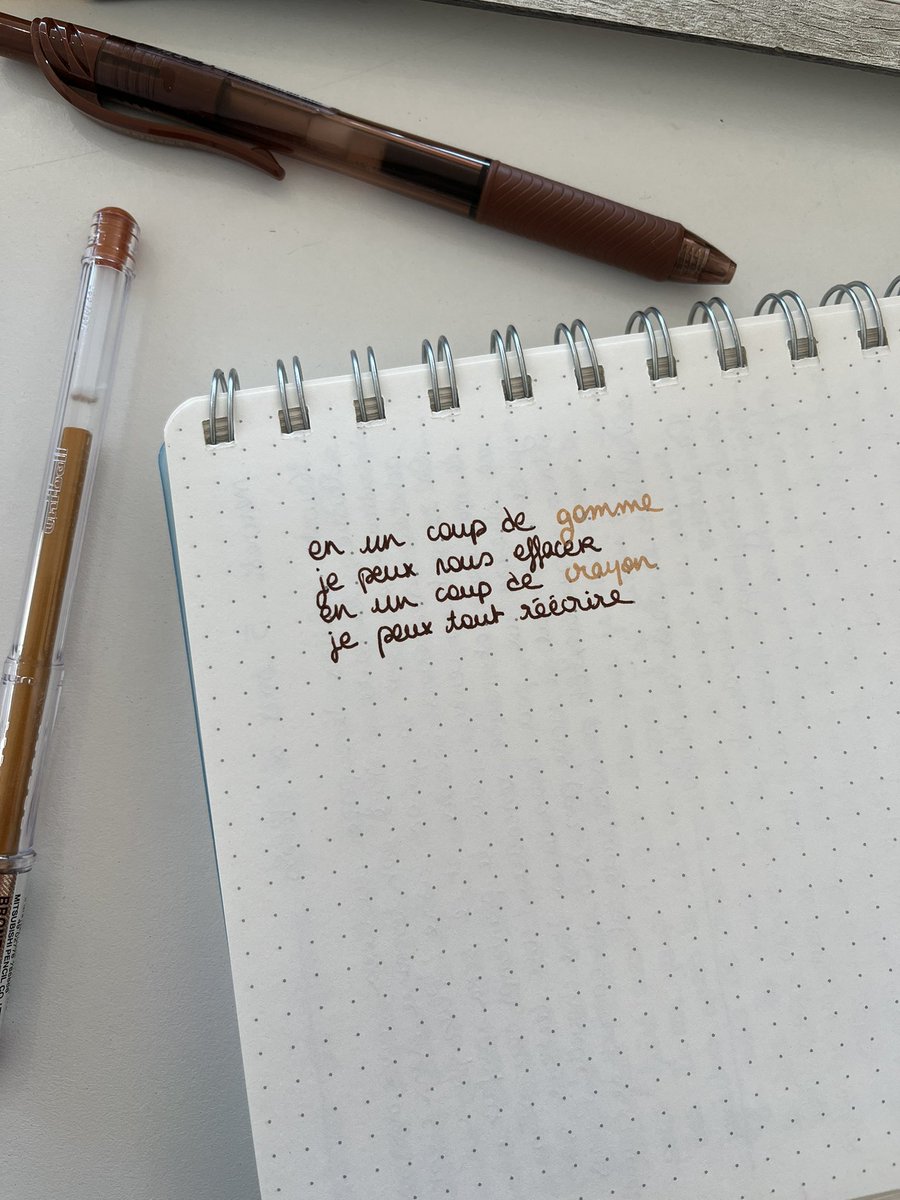 en un coup de gomme
je peux nous effacer
en un coup de crayon
je peux tout réécrire
MITSUBISHI PENCIL CO.